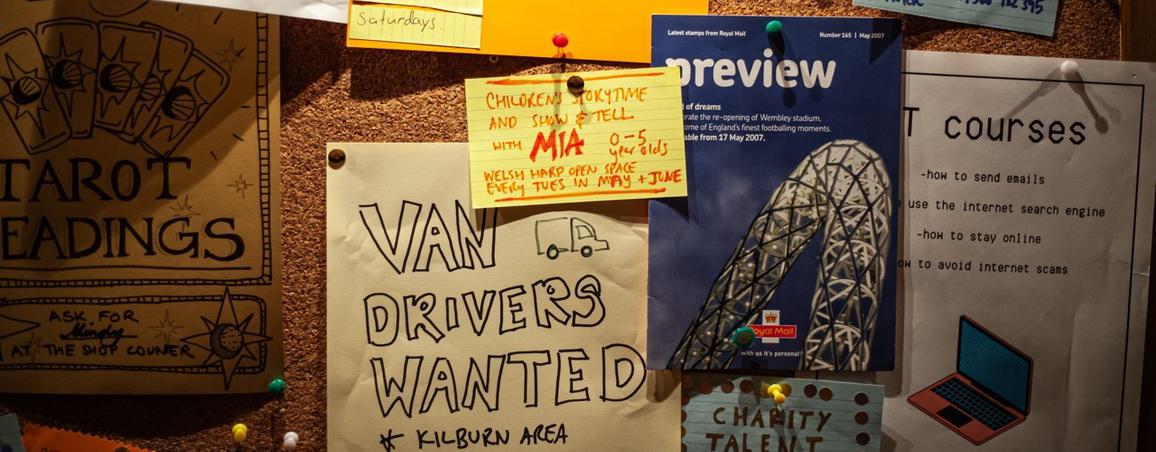 Saturdays.
TAROT
READINGS
ASK FOR
Mindy
AT THE SHOP COUNER
CHILDRENS STORYTIME
AND SHOW & TELL
WITH MIA 0-5
year olds
WELSH HARP OPEN SPACE
EVERY TUES IN MAY + JUNE
VAN
DRIVERS
WANTED
* KILBURN AREA
Latest stamps from Royal Mail Number 165 | May 2007
preview
of dreams
the re-opening of Wembley stadium,
of England's finest footballing moments.
from 17 May 2007.
Royal Mail
with us it's personal
CHARITY
TALENT
courses
-how to send emails
use the internet search engine
-how to stay online
to avoid internet scams